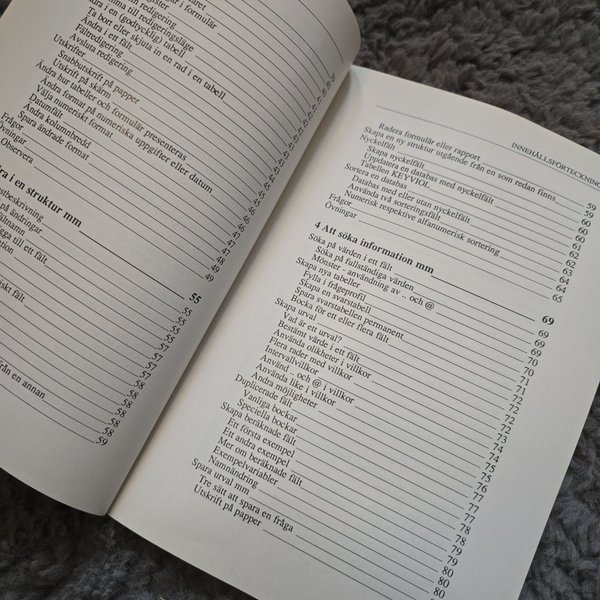 i redigering
ar i formulär
mma till redigeringsläge
dra i en (godtycklig) tabell
Ta bort eller skjuta in en rad i en tabell
Ändra i ett fält
Fältredigering
Avsluta redigering
Utskrifter
Snabbutskrift på papper
Utskrift på skärm
Ändra hur tabeller och formulär presenteras
Ändra format på numeriska uppgifter eller datum
Välja numeriskt format
Datumfält
Ändra kolumnbredd
Spara ändrade format
Övningar
Observera
ra i en struktur mm
stbeskrivning
på ändringar
ältnamn
gga till ett fält
ation
skt fält
från en annan
41
42
43
43
44
44
45
45
46
46
47
48
49
49
55
55
55
55
57
57
57
58
58
58
58
59
INNEHÅLLSFÖRTECKNING
Radera formulär eller rapport
Skapa en ny struktur utgående från en som redan finns 59
Nyckelfält 59
Skapa nyckelfält 60
Uppdatera en databas med nyckelfält 60
Tabellen KEYVIOL 61
Sortera en databas 62
Databas med eller utan nyckelfält 62
Använda två sorteringsfält 63
Numerisk respektive alfanumerisk sortering 64
Frågor 64
Övningar 65
4 Att söka information mm 69
Söka på värden i ett fält 69
Söka på fullständiga värden 69
Mönster - användning av .. och @ 70
Skapa nya tabeller 70
Fylla i frågeprofil 71
Skapa en svarstabell 71
Spara svarstabellen permanent 71
Bocka för ett eller flera fält 72
Skapa urval 72
Vad är ett urval? 72
Bestämt värde i ett fält 73
Använda olikheter i villkor 74
Flera rader med villkor 74
Intervallvillkor 75
Använd .. och @ i villkor 76
Använda like i villkor 76
Andra möjligheter 77
Duplicerade fält 77
Vanliga bockar 77
Speciella bockar 78
Skapa beräknade fält 78
Ett första exempel 79
Ett andra exempel 79
Mer om beräknade fält 80
Exempelvariabler 80
Namnändring 80
Spara urval mm
Tre sätt att spara en fråga
Utskrift på papper